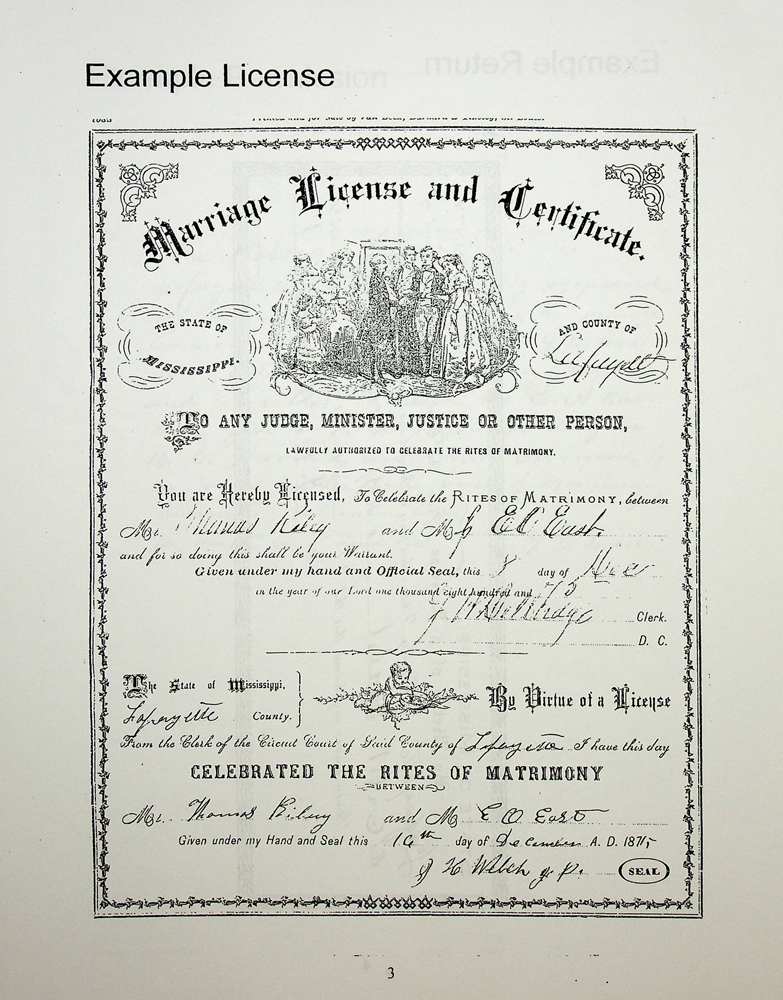 Example License
Marriage License and Certificate.
THE STATE OF
MISSISSIPPI.
AND COUNTY OF
Lafayette
TO ANY JUDGE, MINISTER, JUSTICE OR OTHER PERSON,
LAWFULLY AUTHORIZED TO CELEBRATE THE RITES OF MATRIMONY.
You are Hereby Licensed, To Celebrate the RITES OF MATRIMONY, between
Mr. Thomas and M E O East.
and for so doing this shall be your Warrant.
Given under my hand and Official Seal, this 8 day of Dec
in the year of our Lord one thousand eight hundred and 75
Clerk.
D. C.
The State of Mississippi,
Lafayette County.
By Virtue of a License
From the Clerk of the Circuit Court of Said County of Lafayette I have this day
CELEBRATED THE RITES OF MATRIMONY
BETWEEN
Mr. Thomas and M E O East
Given under my Hand and Seal this day of December A. D. 1875
H Welch J. P. SEAL
3